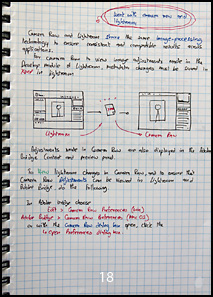 Work with Camera Raw and
Lightroom
Camera Raw and Lightroom share the same image-processing
technology to ensure consistent and compatible results across
applications.
For Camera Raw to view image adjustments made in the
Develop module of Lightroom, metadata changes must be saved in
XMP in Lightroom.
Lightroom
Camera Raw
Adjustments made in Camera Raw are also displayed in the Adobe
Bridge Content and preview panel.
To View Lightroom changes in Camera Raw, and to ensure that
Camera Raw Adjustments can be viewed in Lightroom and
Adobe Bridge do the following.
In Adobe Bridge choose
Edit > Camera Raw Preferences (Win)
Adobe Bridge > Camera Raw Preferences (Mac OS)
or with the Camera Raw dialog box open, click the
Open Preferences dialog box
18